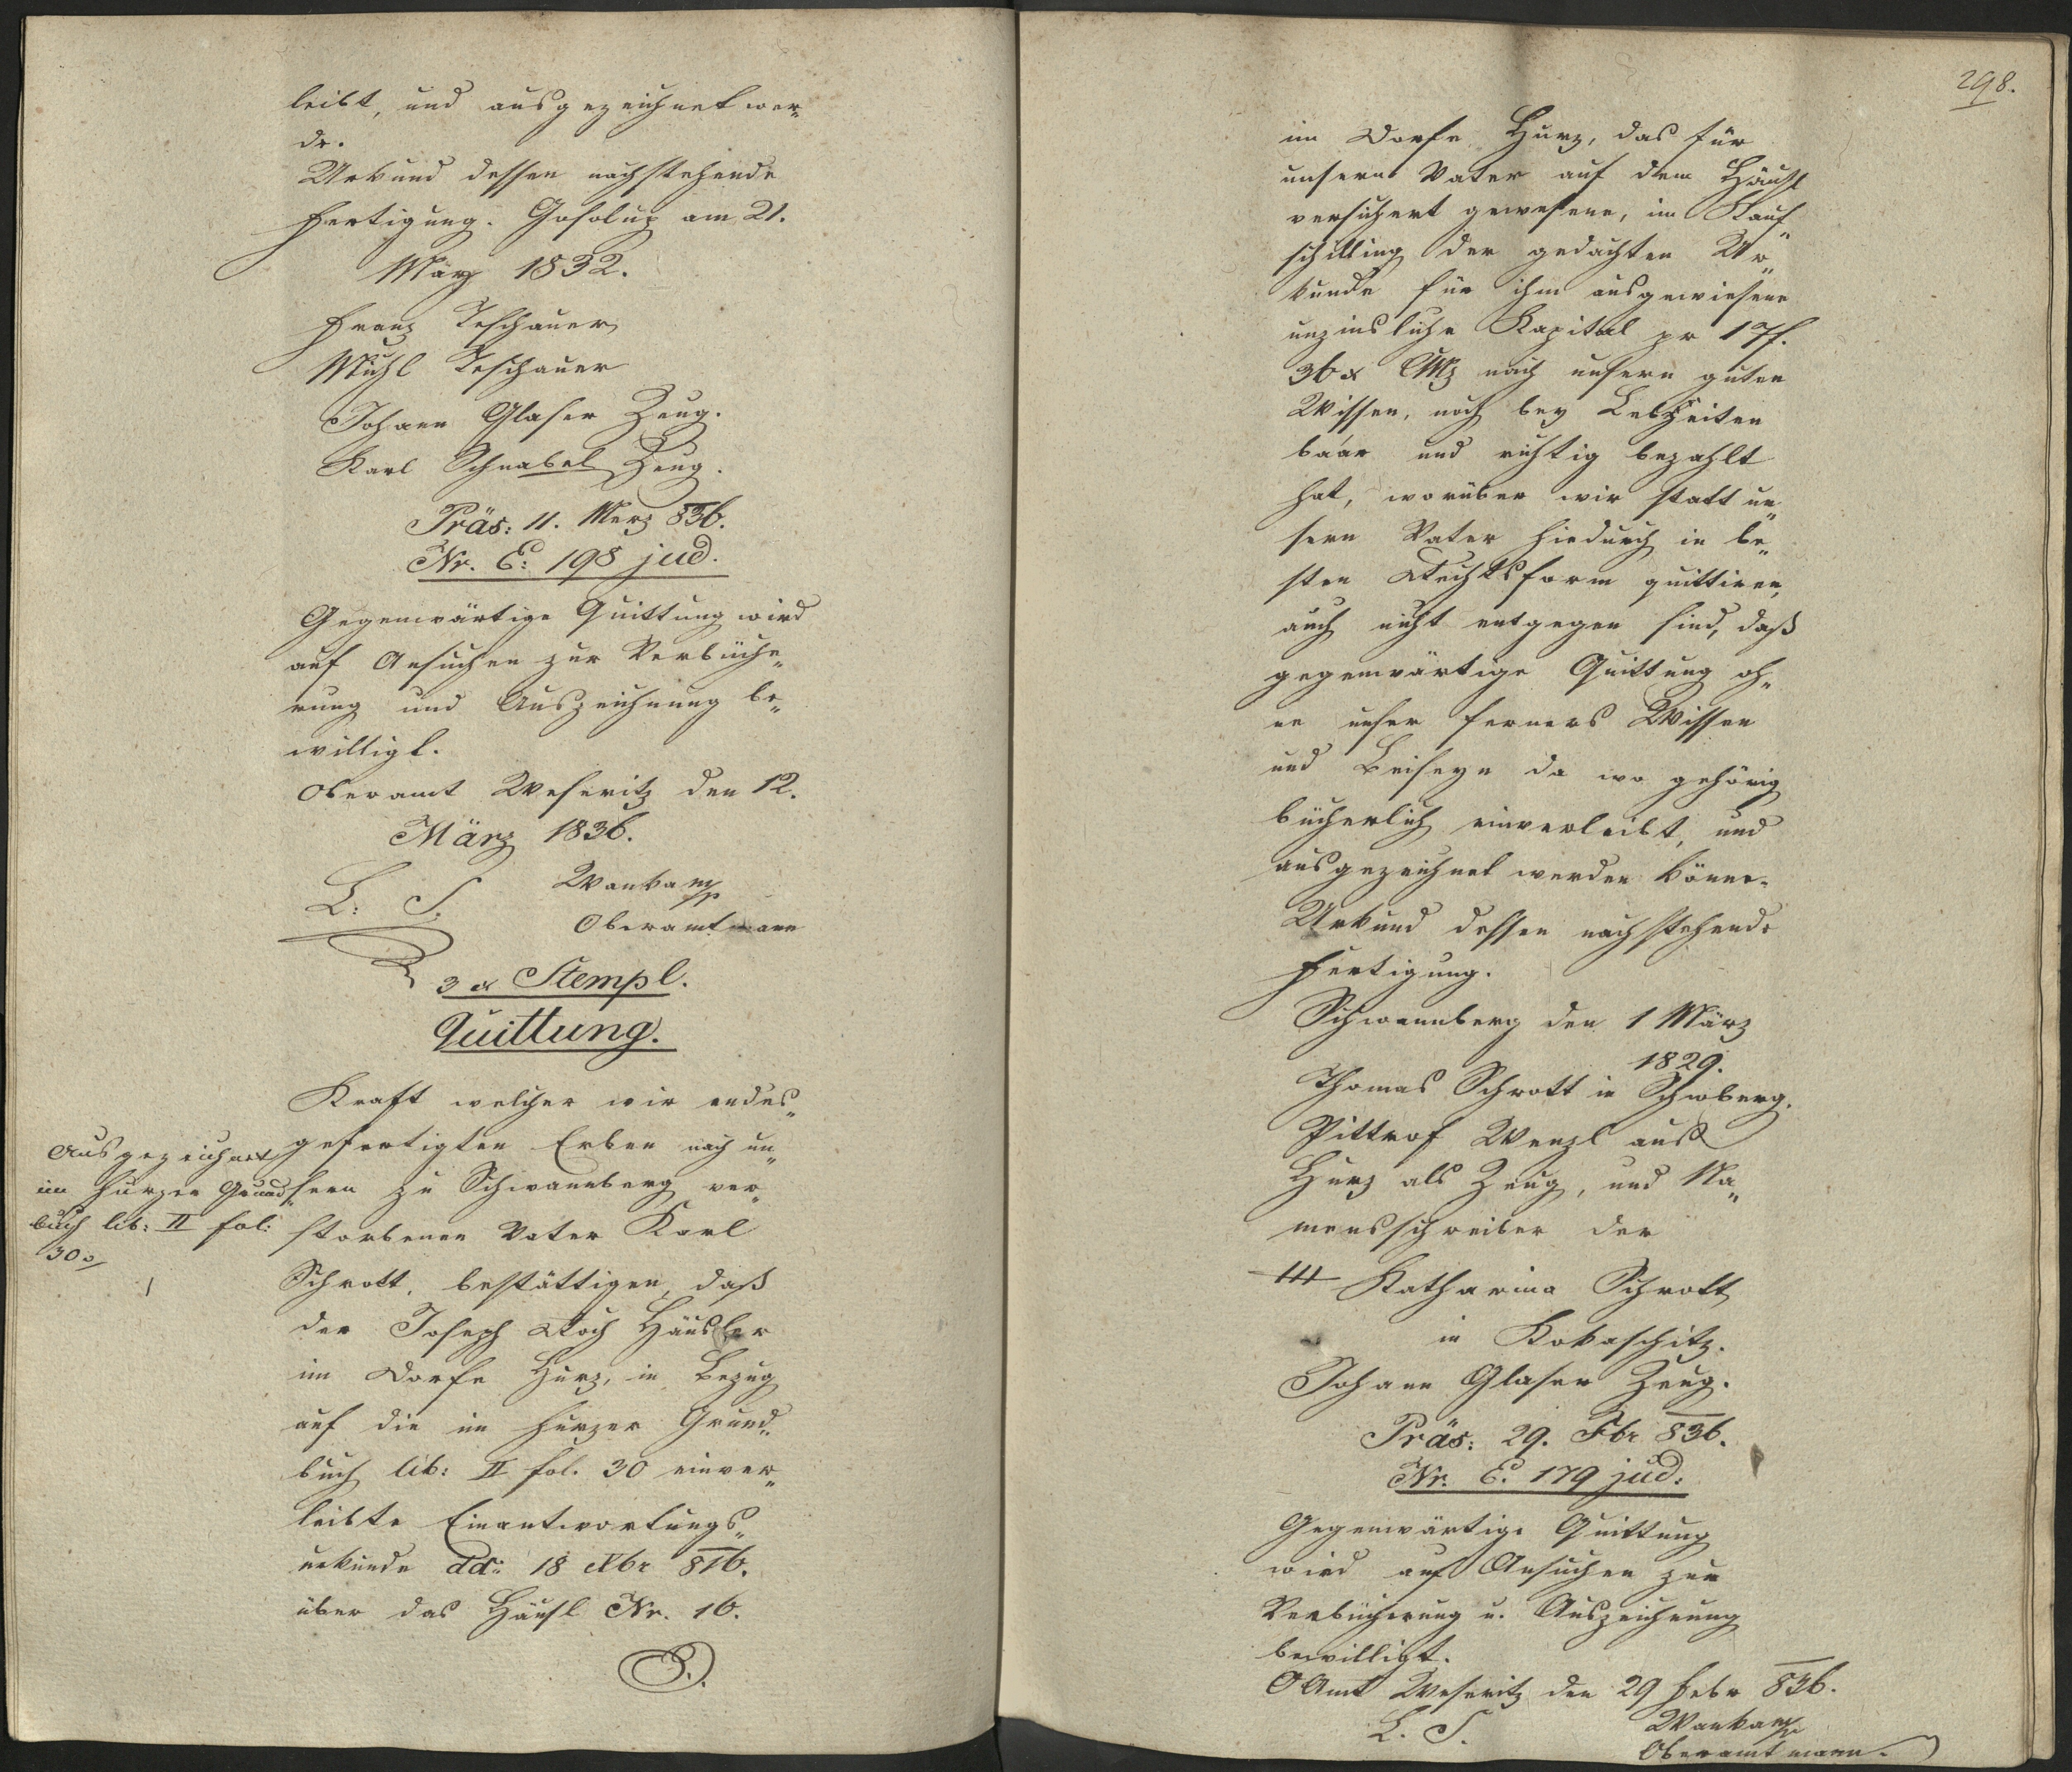 leibt, und ausgezeichnet wer„
de.
Urkund dessen nachstehende
Fertigung. Gosolup am 21.
März 1832.
Franz Teschauer
Michl Teschauer
Johann Glaser Zeug.
Karl Schnabel Zeug.
Präs: 11. Merz 836.
Nr. E: 198 jud.
Gegenwärtige Quittung wird
auf Ansuchen zur Verbüche„
rung und Auszeichnung be„
willigt.
Oberamt Weseritz den 12.
März 1836.
L: S. Wanka mp
Oberamtmann
3 x Stempl.
Quittung.
Kraft welcher wir endes„
gefertigten Erben nach un„
sern zu Schwannberg ver„
storbenen Vater Karl
Schrott, bestättigen, daß
der Joseph Koch Häusler
im Dorfe Hurz, in Bezug
auf die im Hurzer Grund„
buch lib: II fol. 30 einver„
leibte Einantwortungs„
urkunde dd: 18 Xbr 816.
über das Häusl Nr. 16.
Ausgezeichnet
im Hurzer Grund„
buch lib: II fol:
30.
298.
im Dorfe Hurz, das für
unsern Vater auf dem Häusl
versichert gewesene, im Kauf„
schilling der gedachten Ur„
kunde für ihm ausgewiesene
unzinsliche Kapital pr 17f.
36 x CMz nach unsern guten
Wissen, noch bey Lebzeiten
baar und richtig bezahlt
hat, worüber wir statt un„
sern Vater hiedurch in be„
sten Rechtsform quittiren,
auch nicht entgegen sind, daß
gegenwärtige Quittung oh„
ne unser ferners Wissen
und Beiseyn da wo gehörig
bücherlich einverleibt, und
ausgezeichnet werden könne.
Urkund dessen nachstehende
Fertigung.
Schwannberg den 1 März
1829.
Thomas Schrott in Schwberg.
Pittrof Wenzl aus
Hurz als Zeug, und Na„
mensschreiber der
+++ Katharina Schrott
in Kokaschitz.
Johann Glaser Zeug.
Präs: 29. Fbr 836.
Nr. E. 179 jud:
Gegenwärtige Quittung
wird auf Ansuchen zur
Verbücherung u. Auszeichnung
bewilligt.
OAmt Weseritz den 29 Febr 836.
L. S. Wanka mp
Oberamtmann.